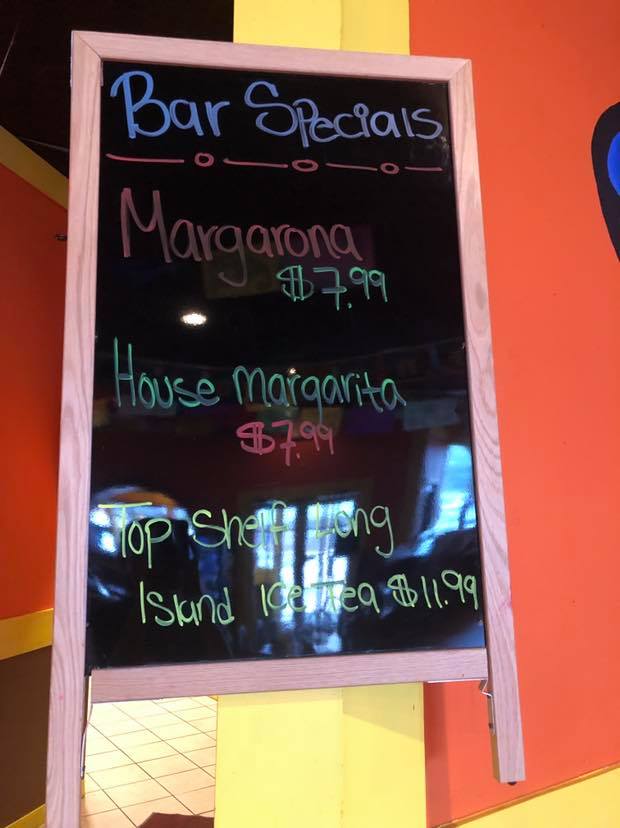 Bar Specials
Margarona
$7.99
House margarita
$7.99
Top Shelf Long
Island Ice Tea $11.99